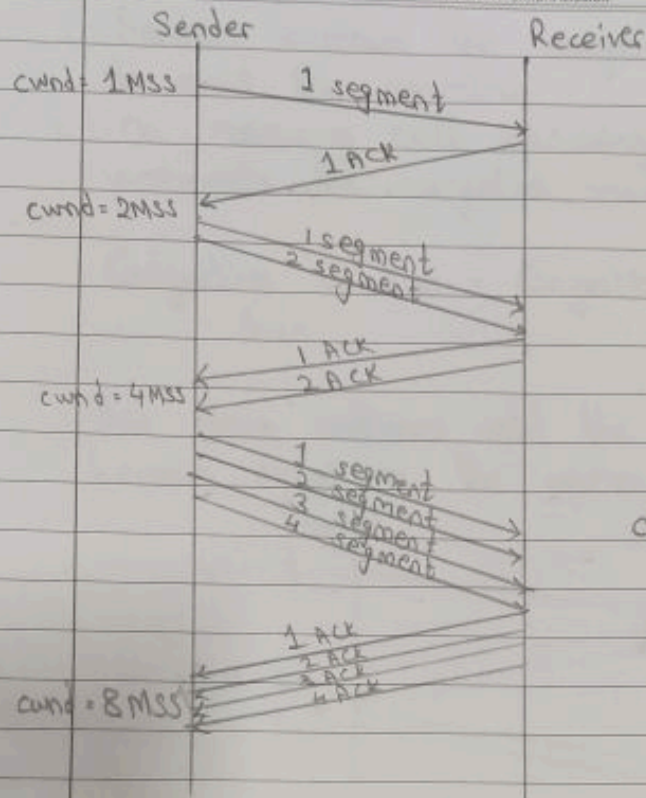 Sender Receiver
cwnd= 1MSS 1 segment
1 ACK
cwnd= 2MSS
1 segment
2 segment
1 ACK
2 ACK
cwnd = 4MSS
1 segment
2 segment
3 segment
4 segment
1 ACK
2 ACK
3 ACK
4 ACK
cwnd = 8MSS